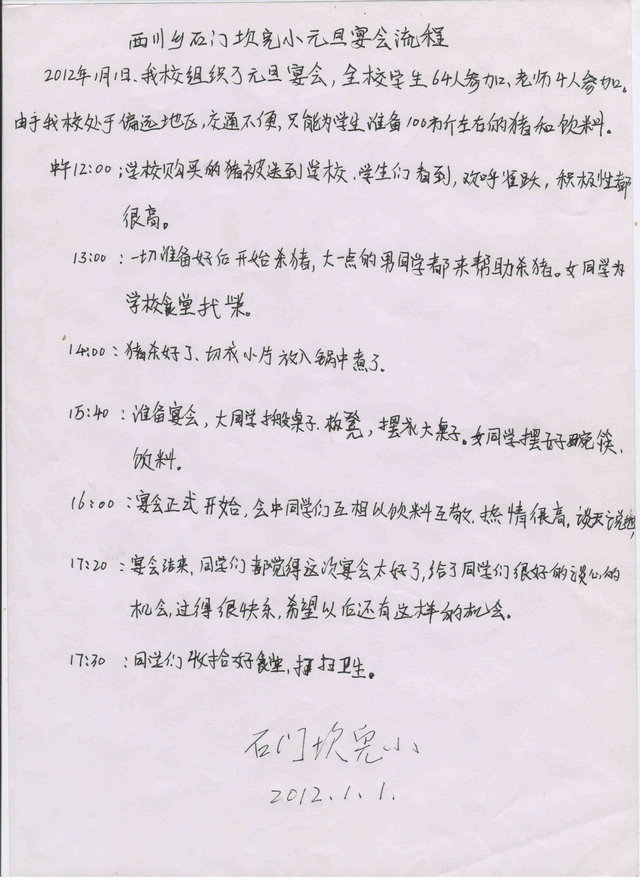 西川乡石门坎完小元旦宴会流程
2012年1月1日、我校组织了元旦宴会，全校学生64人参加、老师4人参加。
由于我校处于偏远地区，交通不便，只能为学生准备100市斤左右的猪和饮料。
中午12:00：学校购买的猪被送到学校、学生们看到，欢呼雀跃，积极性都
很高。
13:00：一切准备好后开始杀猪，大一点的男同学都来帮助杀猪。女同学为
学校食堂找柴。
14:00：猪杀好了、切成小片放入锅中煮了。
15:40：准备宴会，大同学搬桌子、板凳，摆成大桌子。女同学摆好碗筷、
饮料。
16:00：宴会正式开始，会中同学们互相以饮料互敬、热情很高，谈天说地，
17:20：宴会结束，同学们都觉得这次宴会太好了，给了同学们很好的谈心的
机会，过得很快乐，希望以后还有这样的机会。
17:30：同学们收拾好食堂，打扫卫生。
石门坎完小
2012.1.1.